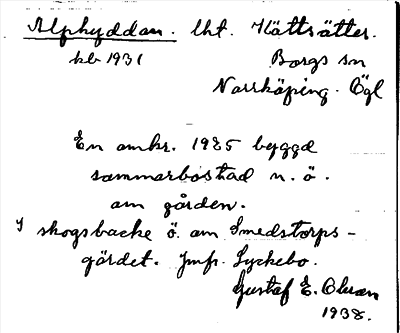 Alphyddan. lht. Kättsätter.
kb 1931 Borgs sn
Norrköping. Ögl
En omkr. 1925 byggd
sommarbostad n. ö.
om gården.
I skogsbacke ö. om Smedstorps-
gärdet. Jmfr. Lyckebo.
Gustaf E. Olsson
1938.